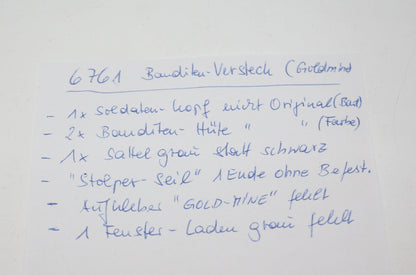 6761 Banditen-Versteck (Goldmine
- 1x Soldaten-Kopf nicht Original (Bart)
- 2x Banditen-Hüte " " (Farbe)
- 1x Sattel grau statt schwarz
- "Stolper-Seil" 1 Ende ohne Befest.
- Aufkleber "GOLD-MINE" fehlt
- 1 Fenster-Laden grau fehlt